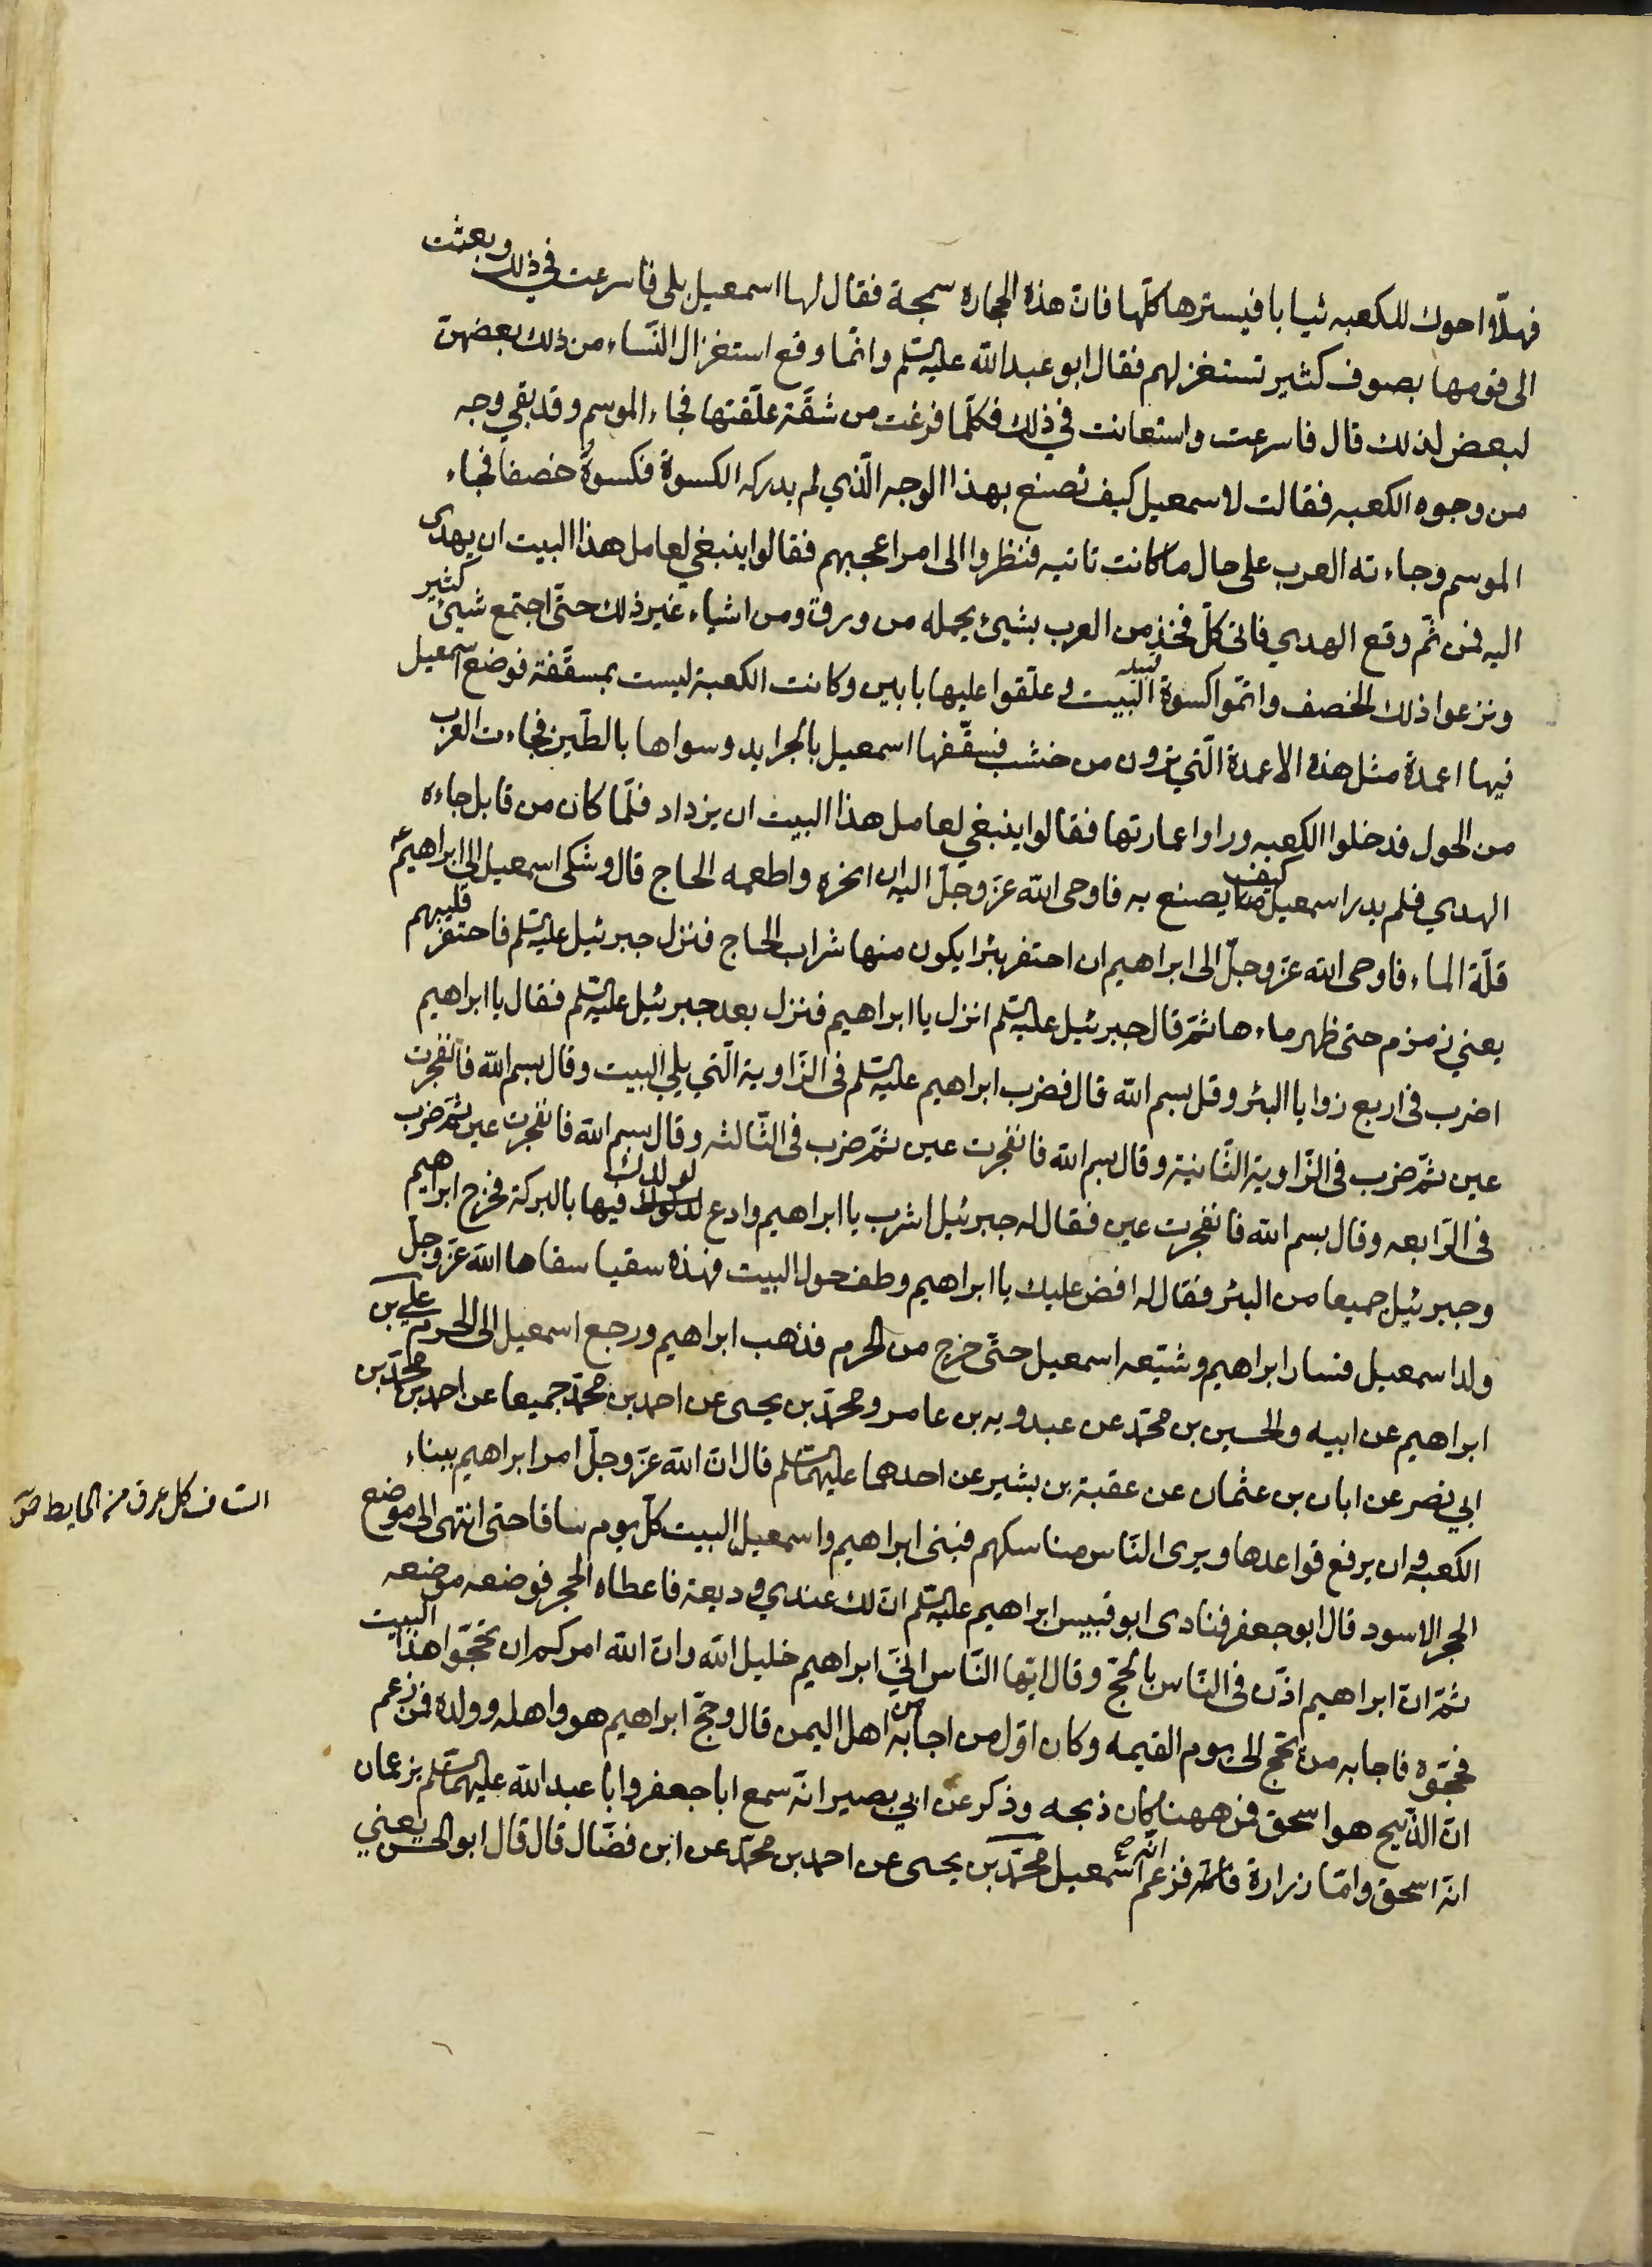 فهلّا احوك للكعبه ثيابا فيسترها كلّها فانّ هذه الحجاره سمجة فقال لها اسمعيل بلى فاسرعت في ذلك وبعثت
الى قومها بصوف كثير تستغزلهم فقال ابو عبد الله عليه السلم وانّما وقع استغزال النّساء من ذلك بعضهنّ
لبعض لذلك قال فاسرعت واستعانت في ذلك فكلّما فرغت من شقّة علّقتها فجاء الموسم وقد بقي وجه
من وجوه الكعبه فقالت لاسمعيل كيف نصنع بهذا الوجه الّذي لم يدركه الكسوة فكسوهُ خصفا فجاء
الموسم وجاءته العرب على حال ما كانت تاتيه فنظروا الى امر اعجبهم فقالوا ينبغي لعامل هذا البيت ان يهدى
اليه فمن ثمّ وقع الهدي فاتى كلّ فخذ من العرب بشيئ يحمله من ورق ومن اشياء غير ذلك حتّى اجتمع شيئ كثير
ونزعوا ذلك الخصف واتمّوا كسوة البيت و علّقوا عليها بابين وكانت الكعبة ليست بمسقّفة فوضع اسمعيل
فيها اعمدة مثل هذه الاعمدة الّتي ترون من خشب فسقّفها اسمعيل بالجرايد وسواها بالطّين فجاءت العرب
من الحول فدخلوا الكعبه وراوا عمارتها فقالوا ينبغي لعامل هذا البيت ان يزداد فلمّا كان من قابل جاءه
الهدي فلم يدر اسمعيل كيف يصنع به فاوحى الله عزّ وجلّ اليه ان انحره واطعمه الحاج قال وشكى اسمعيل الى ابراهيم ع
قلّة الماء فاوحى الله عزّ وجلّ الى ابراهيم ان احتفر بئرا يكون منها شراب الحاج فنزل جبرئيل عليه السلم فاحتفر قليبهم
يعني زمزم حتى ظهر ماءها ثمّ قال جبرئيل عليه السلم انزل يا ابراهيم فنزل بعد جبرئيل عليه السلم فقال يا ابراهيم
اضرب في اربع زوايا البئر وقل بسم الله قال فضرب ابراهيم عليه السلم في الزّاوية الّتي يلي البيت وقال بسم الله فانفجرت
عين ثمّ ضرب في الزّاوية الثّانية وقال بسم الله فانفجرت عين ثمّ ضرب في الثّالثه وقال بسم الله فانفجرت عين ثمّ ضرب
في الرّابعه وقال بسم الله فانفجرت عين فقال له جبرئيل اشرب يا ابراهيم وادع لولدك فيها بالبركة فخرج ابراهيم
وجبرئيل جميعا من البئر فقال له افض عليك يا ابراهيم وطف حول البيت فهذه سقيا سقاها الله عزّ وجلّ
ولد اسمعيل فسار ابراهيم وشيّعه اسمعيل حتّى خرج من الحرم فذهب ابراهيم ورجع اسمعيل الى الحرم علي بن
ابراهيم عن ابيه والحسين بن محمّد عن عبدويه بن عامر ومحمّد بن يحيى عن احمد بن محمّد جميعا عن احمد بن محمّد بن
ابي نصر عن ابان بن عثمان عن عقبة بن بشير عن احدهما عليهما السلم قال انّ الله عزّ وجلّ امر ابراهيم ببناء
الكعبه وان يرفع قواعدها ويرى النّاس مناسكهم فبنى ابراهيم واسمعيل البيت كلّ يوم سافا حتى انتهى الى موضع
الساف كل عرق من الحايط ص
الحجر الاسود قال ابو جعفر فنادى ابو قبيس ابراهيم عليه السلم انّ لك عندي وديعة فاعطاه الحجر فوضعه موضعه
ثمّ انّ ابراهيم اذّن في النّاس بالحجّ وقال ايّها النّاس انّي ابراهيم خليل الله وانّ الله امركم ان تحجّوا هذا البيت
فحجّوه فاجابه من يحجّ الى يوم القيمه وكان اوّل من اجابه من اهل اليمن قال وحجّ ابراهيم هو واهله وولده فمن زعم
انّ الذّبيح هو اسحق فمن ههنا كان ذبحه وذكر عن ابي بصير انّه سمع ابا جعفر وابا عبد الله عليهما السلم يزعمان
انّه اسحق وامّا زرارة فزعم انّه اسمعيل محمّد بن يحيى عن احمد بن محمّد عن ابن فضّال قال قال ابو الحسن يعني